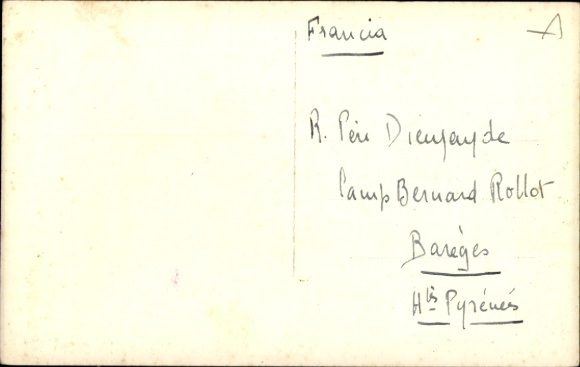 Francia
R. Père Dieuzayde
Camp Bernard Rollot
Barèges
Htes Pyrénées